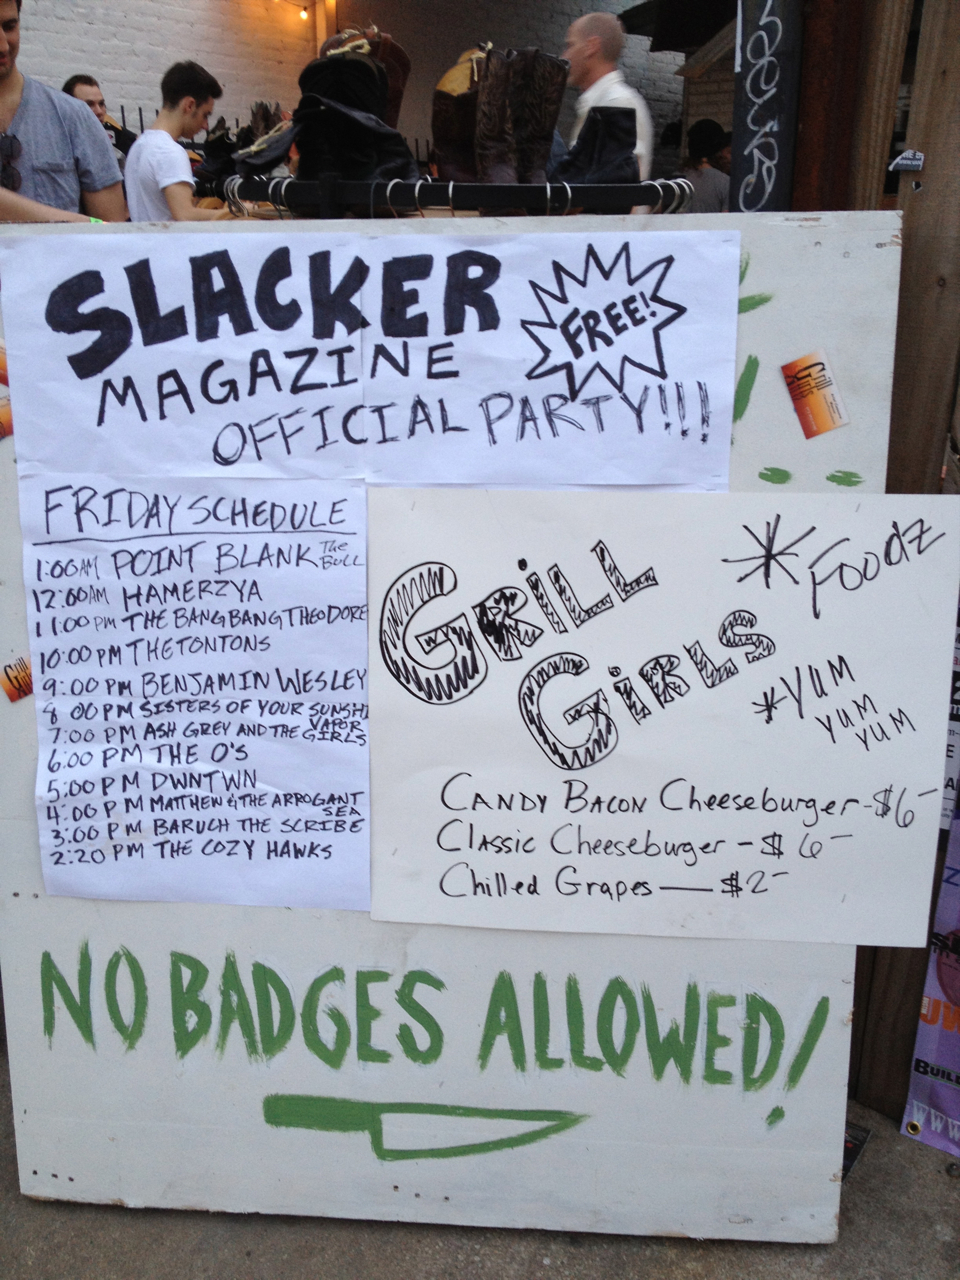 SLACKER
MAGAZINE
OFFICIAL PARTY!!!
FREE!
FRIDAY SCHEDULE
1:00AM POINT BLANK The Bull
12:00AM HAMERZYA
11:00PM THE BANGBANG THEODORE
10:00 PM THETONTONS
9:00 PM BENJAMIN WESLEY
8 00PM SISTERS OF YOUR SUNSHI
7:00 PM ASH GREY AND THE VAPOR GIRLS
6:00 PM THE O'S
5:00 PM DWNTWN
4:00 PM MATTHEW & THE ARROGANT SEA
3:00 PM BARUCH THE SCRIBE
2:20 PM THE COZY HAWKS
GRiLL
GiRLS
*Foodz
*YUM
YUM
YUM
CANDY BACON Cheeseburger-$6-
Classic Cheeseburger - $6-
Chilled Grapes — $2-
NO BADGES ALLOWED!
Grill
Grill
BUIL
WWW